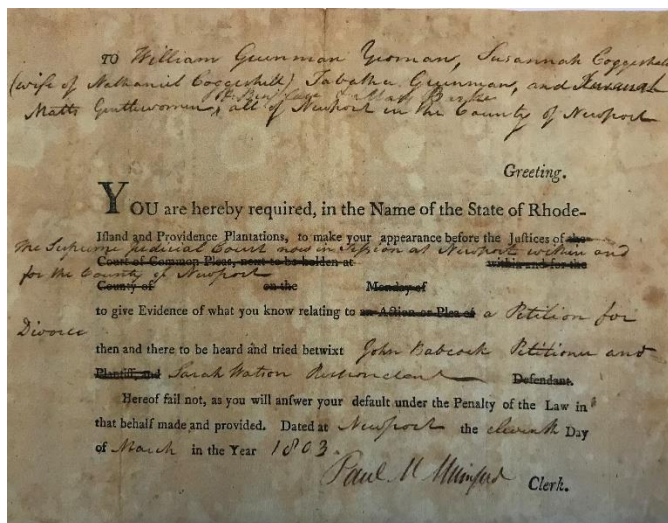 TO William Greenman Yeoman, Susannah Coggeshall
(wife of Nathaniel Coggeshall) Tabatha Greenman, and
Matts Gentlewomen, all of Newport in the County of Newport
Greeting.
YOU are hereby required, in the Name of the State of Rhode-
Island and Providence Plantations, to make your appearance before the Justices of the
the Supreme Judicial Court now in Session at Newport within and
Court of Common Pleas, next to be holden at within and for the
for the County of Newport
County of on the Monday of
to give Evidence of what you know relating to an Action or Plea of a Petition for
Divorce
then and there to be heard and tried betwixt John Babcock Petitioner and
Plaintiff, and Sarah Watson Respondent Defendant.
Hereof fail not, as you will answer your default under the Penalty of the Law in
that behalf made and provided. Dated at Newport the eleventh Day
of March in the Year 1803.
Paul M Mumford Clerk.